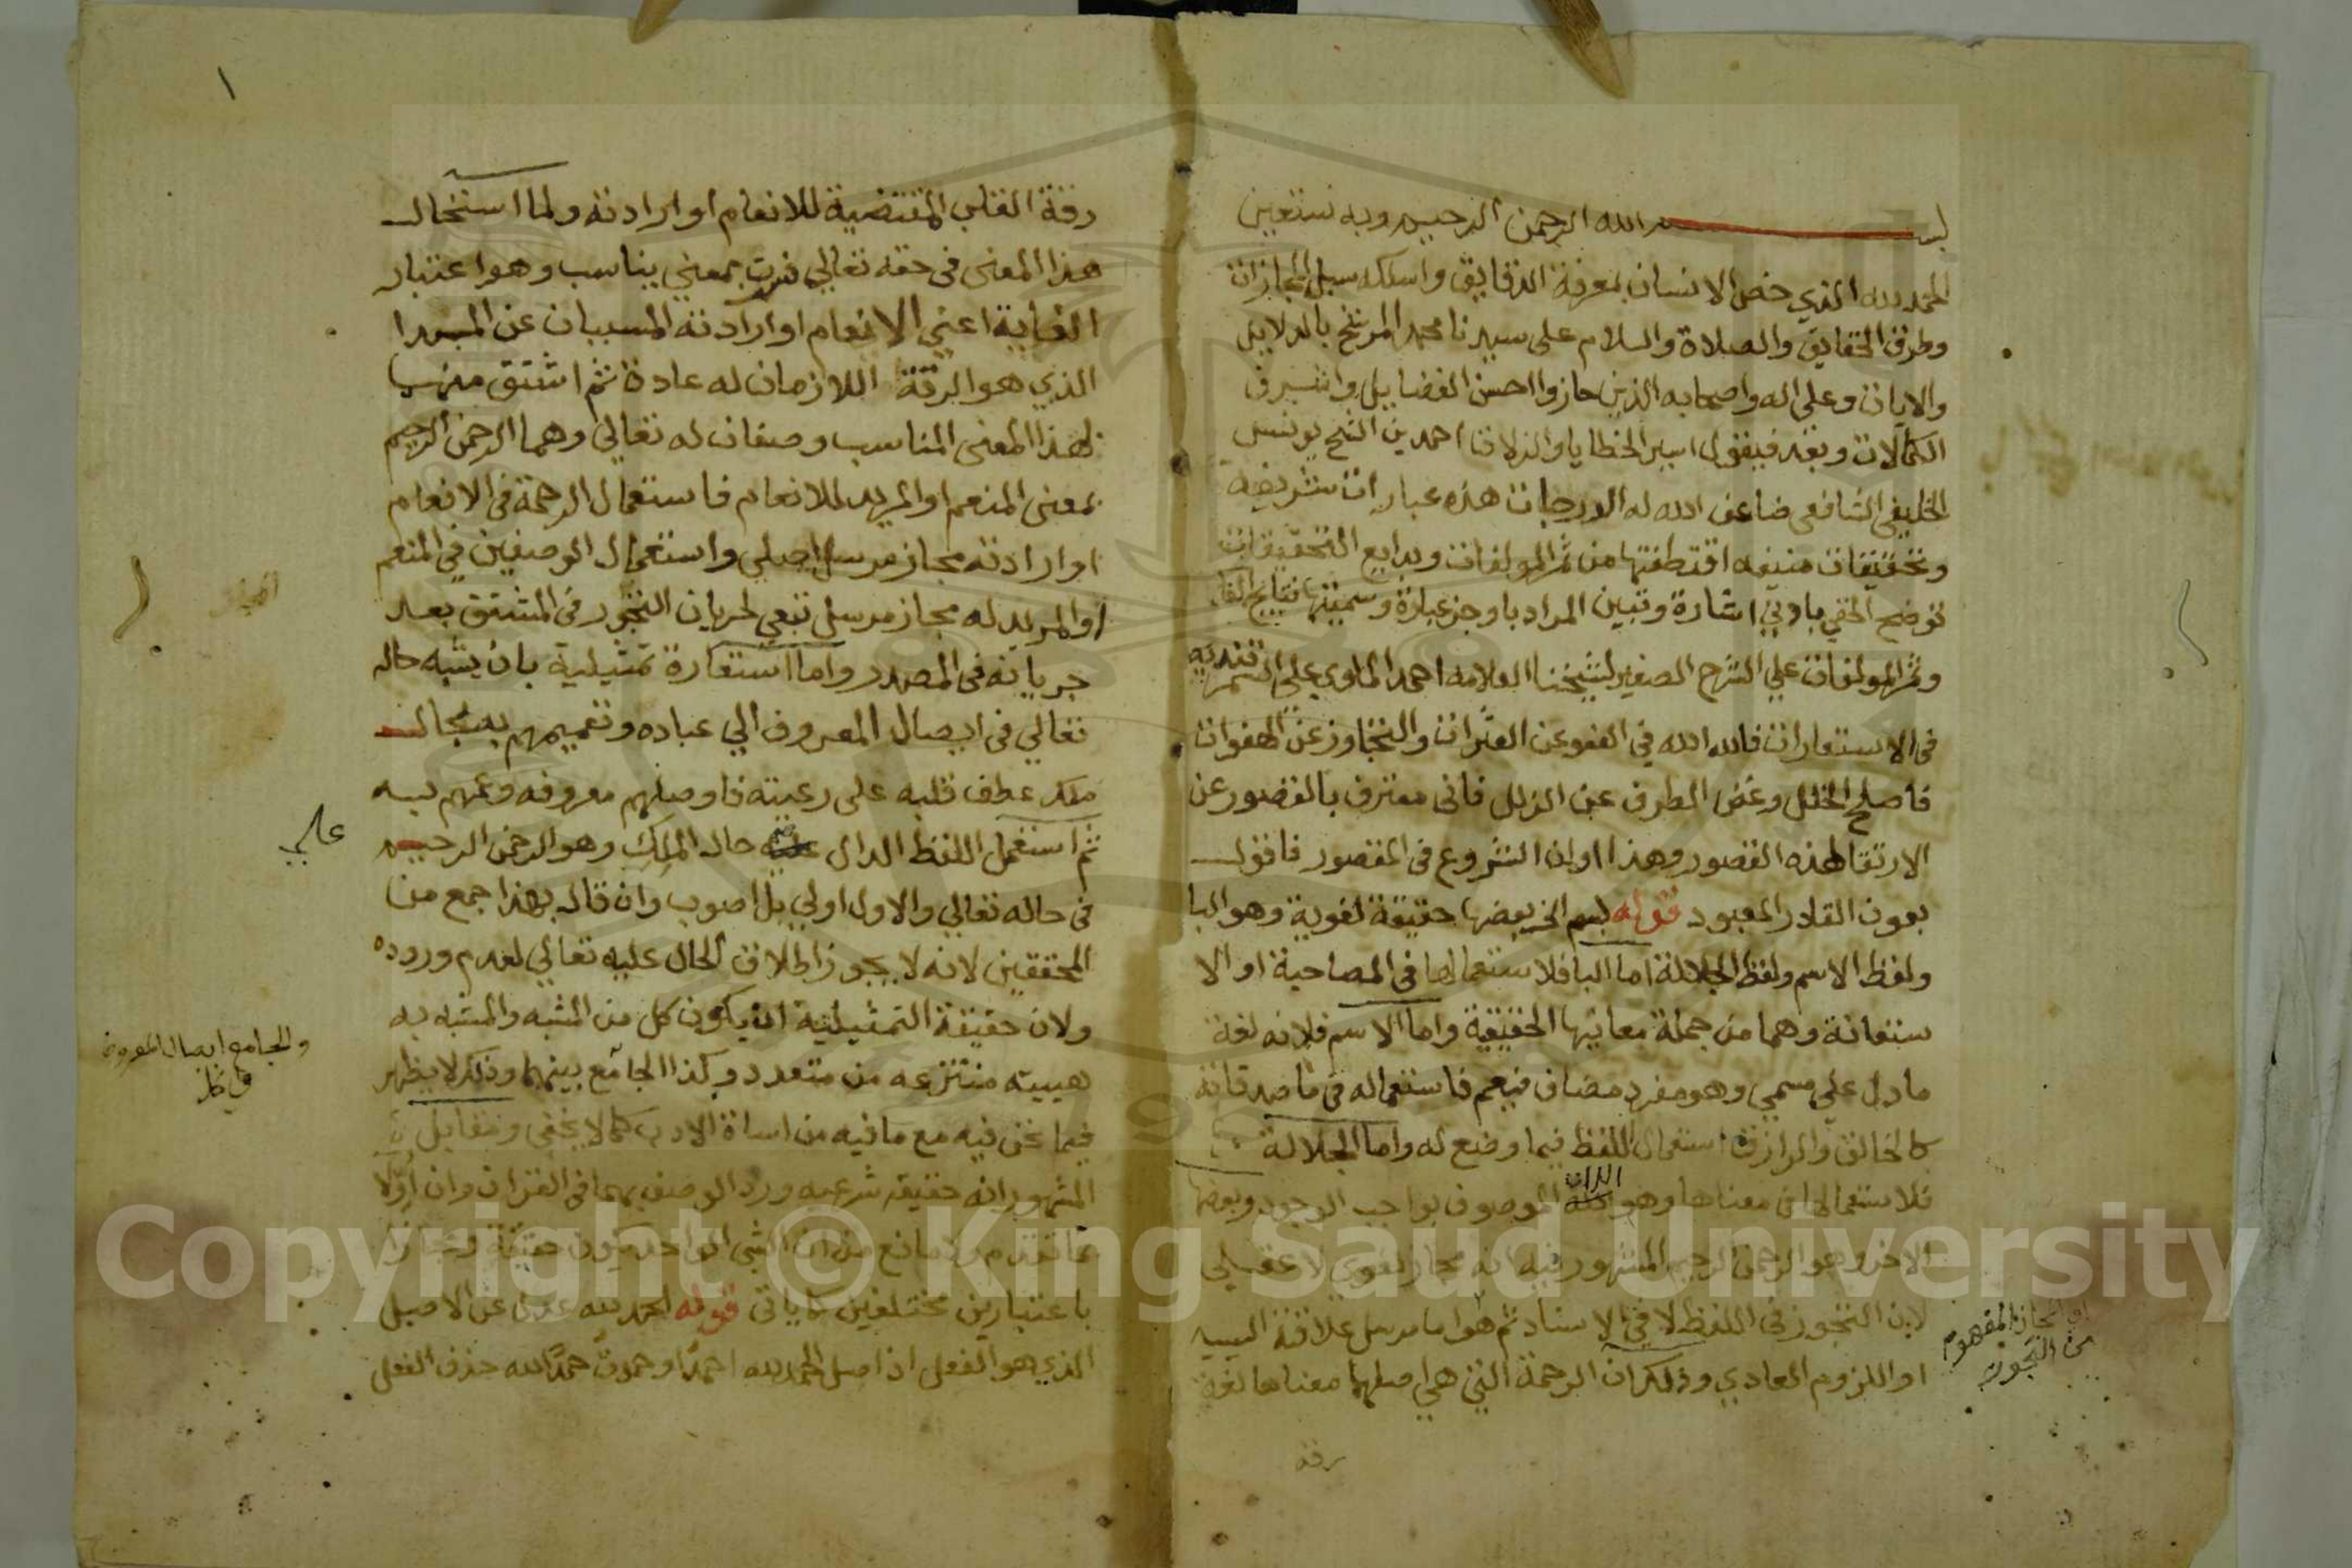 بسم الله الرحمن الرحيم وبه نستعين
الحمد لله الذي خص الانسان بمعرفة الدقايق واسلكه سبل المجازات
وطرق الحقايق والصلاة والسلام على سيدنا محمد المرشح بالدلايل
والايات وعلى اله واصحابه الذين حازوا احسن الفضايل واشرف
الكمالات وبعد فيقول اسير الخطايا والزلات احمد بن الشيخ يونس
الخليفي الشافعي ضاعف الله له الدرجات هذه عبارات شريفة
وتحقيقات منيفه اقتطفتها من ثمر المولفات وبدايع التحقيقات
توضح الخفي باوفي اشارة وتبين المراد باوجز عبارة وسميتها نتايج الفكر
وثمر المولفات علي الشرح الصغير لشيخنا العلامه احمد الملوي علي السمرقنديه
في الاستعارات فالله الله في العفو عن العثرات والتجاوز عن الهفوات
فاصلح الخلل وغض الطرف عن الزلل فاني معترف بالقصور عن
الارتقا لهذه القصور وهذا اوان الشروع في المقصور فاقول
بعون القادر المعبود قوله بسم الخ بعضها حقيقة لغوية وهو البا
ولفظ الاسم ولفظ الجلالة اما البا فلاستعمالها في المصاحبة او الا
ستعانة وهما من جملة معانيها الحقيقية واما الاسم فلانه لغة
ما دل علي مسمي وهو مفرد مضاف فيعم فاستعماله في ماصدقاته
كالخالق والرازق استعمال اللفظ فيما وضع له واما الجلالة
فلاستعمالها في معناها وهو الذات الموصوف بواجب الوجود وبعضها
الاخر وهو الرحمن الرحيم المشهور فيه انه مجاز لغوي لا عقيلي
لان التجوز في اللفظ لا في الاسناد ثم هو اما مرسل علاقته السببيه
او اللزوم العادي وذلك ان الرحمة التي هي اصلهما معناها لغة
رقة
اي المجاز المفهوم
من التجوز
١
رقة القلب المقتضية للانعام او ارادته ولما استحال
هذا المعنى في حقه تعالي فسرت بمعني يناسب وهو اعتبار
الغاية اعني الانعام او ارادته المسببان عن المبدا
الذي هو الرقة اللازمان له عادة ثم اشتق منها
لهذا المعنى المناسب وصفان له تعالي وهما الرحمن الرحيم
بمعنى المنعم او المريد للانعام فاستعمال الرحمة في الانعام
او ارادته مجاز مرسل اصلي واستعمال الوصفين في المنعم
او المريد له مجاز مرسل تبعي لجريان التجوز في المشتق بعد
جريانه في المصدر واما استعارة تمثيلية بان يشبه حاله
تعالي في ايصال المعروف الي عباده وتعميمهم به بحال
ملك عطف قلبه على رعيته فاوصلهم معروفه وعمهم به
ثم استعمل اللفظ الدال علي حال الملك وهو الرحمن الرحيم
في حاله تعالي والاول اولي بل اصوب وان قال بهذا جمع من
المحققين لانه لا يجوز اطلاق الحال عليه تعالي لعدم وروده
ولان حقيقة التمثيلية ان يكون كل من المشبه والمشبه به
هيية منتزعه من متعدد وكذا الجامع بينهما وذلك لا يظهر
فيما نحن فيه مع ما فيه من اساة الادب كما لا يخفى ومقابل
المشهور انه حقيقة شرعيه ورد الوصف بهما في القران وان اولا
بما تقدم ولا مانع من ان الشي الواحد يكون حقيقة ومجازا
باعتبارين مختلفين كما ياتي قوله الحمد لله عدل عن الاصل
الذي هو الفعل اذ اصل الحمد لله احمد او حمدت حمدا لله حذف الفعل
علي
والجامع ايصال المعروف
في كل
Copyright © King Saud University